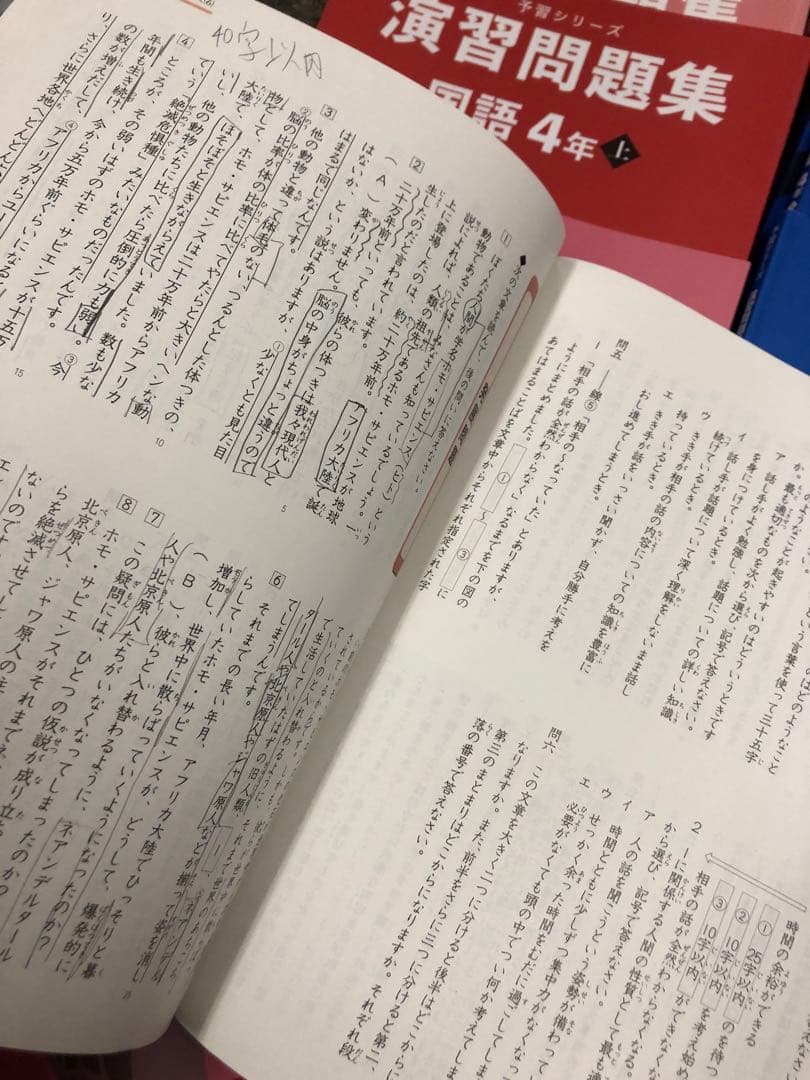 予習シリーズ
演習問題集
国語 4年 上
か。
最も適切なものを次から選び、記号で答えなさい。
ア 話し手がよく勉強し、話題についての詳しい知識
を身につけているとき。
イ 話し手が話題について深く理解をしないまま話し
続けているとき。
ウ きき手が相手の話の内容についての知識を豊富に
持っているとき。
エ きき手が話をいっさい聞かず、自分勝手に考えを
おし進めてしまうとき。
問五 ――線⑤「相手の
になっていた」とありますが、
「相手の話が全然わからなく」なるまでを下の図の
ようにまとめました。①~③に
あてはまることばを文章中からそれぞれ指定された字
時間の余裕ができる
① 25字以内
② 10字以内 のを待つ
③ 10字以内 を考え始め
相手の話が全然わからなくなる。
2
から選び、記号で答えなさい。
ア 人の話を聞こうという姿勢が備わってい
イ 時間とともに少しずつ集中力がなくなっ
ウ せっかく余った時間をむだに過ごしてしま
エ 必要がなくても頭の中でつい何か考えてしま
問六 この文章を大きく二つに分けると後半はどこからに
なりますか。また、前半をさらに三つに分けると第二、
第三のまとまりはどこからになりますか。それぞれ段
落の番号で答えなさい。
40字以内
◆次の文章を読んで、後の問いに答えなさい。
1 ぼくたち人間が学名ホモ・サピエンス(ヒト)という
動物であることは、みなさんも知っているでしょう。一
説によれば、人類の祖先であるホモ・サピエンスが地球
上に登場したのは、約二十万年前。アフリカ大陸で誕
生したのだと言われています。
2 二十万年前といっても、彼らの体つきは我々現代人と
(A)変わりません。脳の中身がちょっと違うので
はないか、という説はありますが、①少なくとも見た目
はまるで同じなんです。
3 他の動物と違って体毛のない、つるんとした体つきの、
②脳の比率が体の比率に比べてやたらと大きいヘンな動
物として、ホモ・サピエンスは二十万年前からアフリカ
大陸で、ほそぼそと生きながらえていました。数も少な
いし、他の動物たちに比べたら圧倒的に力も弱い。③今
でいう「絶滅危惧種」みたいなものだったんです。
4 ところが、その弱いはずのホモ・サピエンスが十五万
年間も生き続け、今から五万年前ぐらいになると
の数が増えだして、④アフリカからユー
、さらに世界各地へどんどん
5
10
15
タール人や北京原人やジャワ原人などが揃って姿を消し
てしまうんです。
6 それまでの長い年月、アフリカ大陸でひっそりと暮
らしていたホモ・サピエンスが、どうして、爆発的に
増加し、世界中に散らばっていくようになったのか?
7 (B)、彼らと入れ替わるように、ネアンデルタール
人や北京原人たちがいなくなってしまったのか?
8 この疑問には、ひとつの仮説が成り立
ホモ・サピエンスがそれまで
北京原人、ジャワ原人の
らを絶滅させてし
ないのです